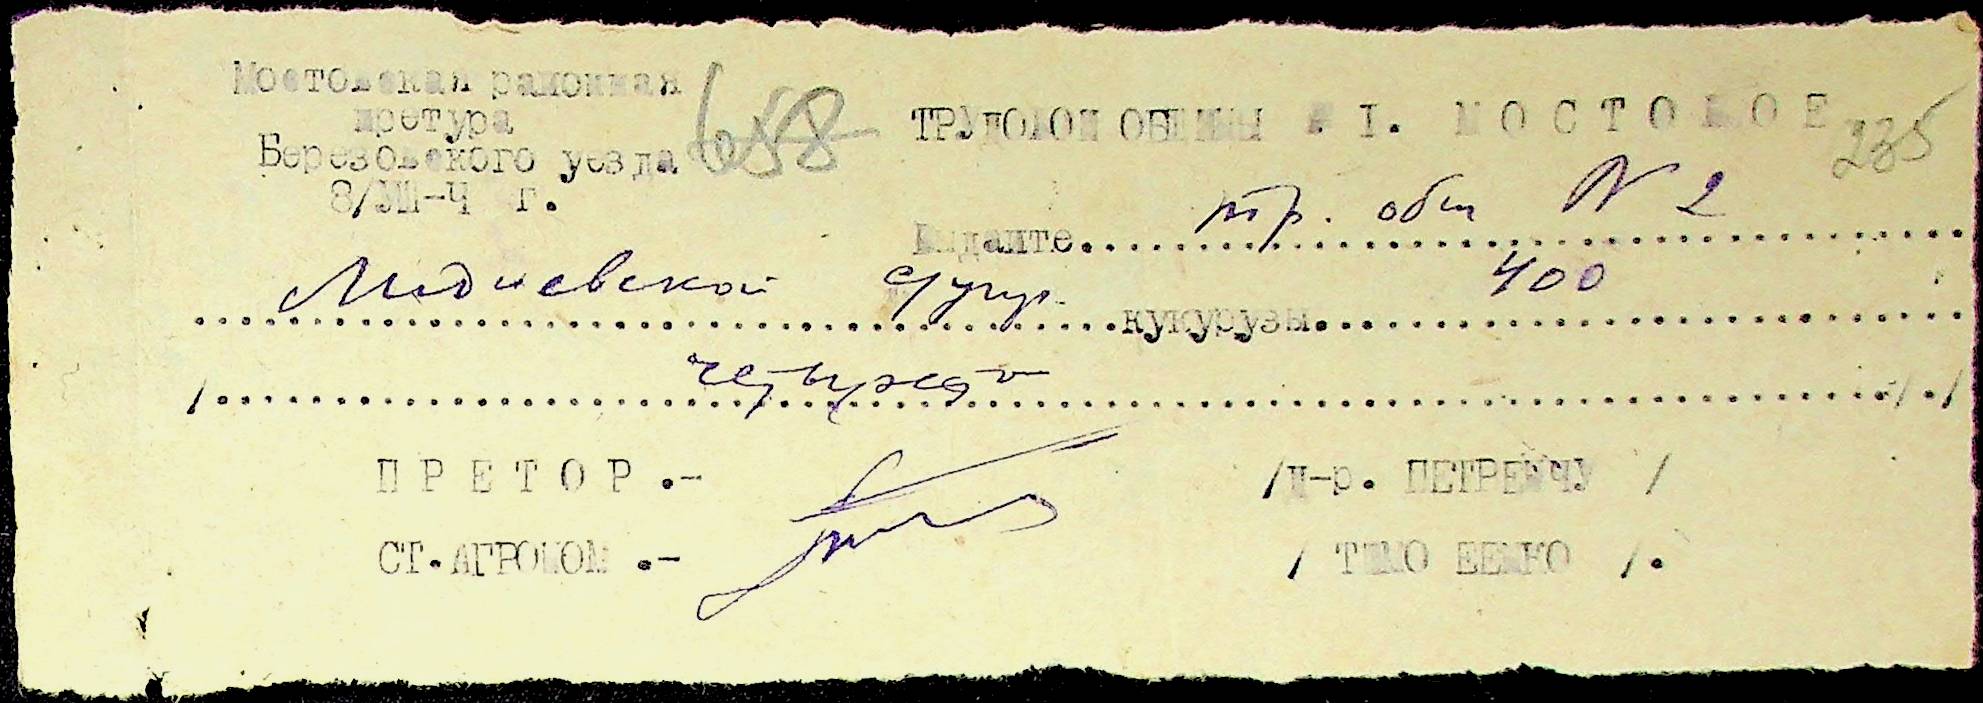 Мостовская районная
претура
Березовского уезда
8/УШ-Ч г.
658
ТРУДОВОЙ ОБЩИНЫ № I. МОСТОВОЕ
235
Выдайте тр. общ № 2
кукурузы 400
/ четыреста /./
ПРЕТОР.-
/И-р. ПЕТРЕНЧУ /
СТ.АГРОНОМ.-
/ ТИМО ЕЕНКО /.